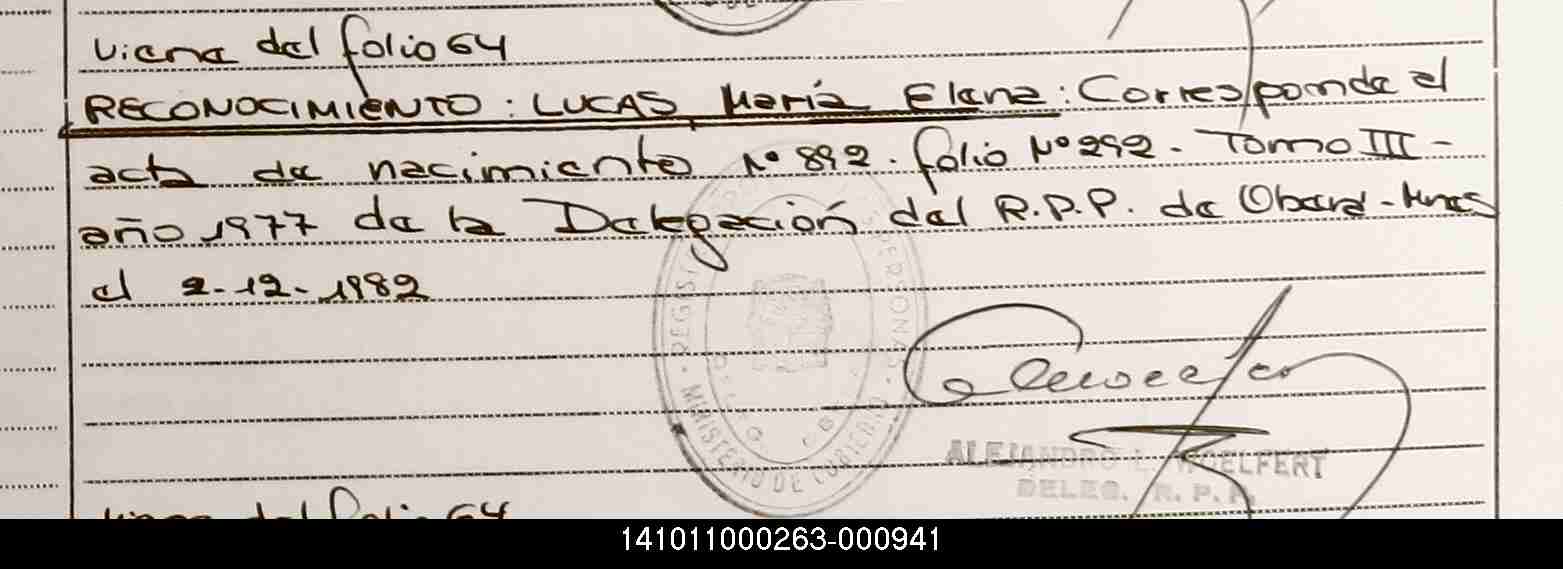 viene del folio 64
RECONOCIMIENTO: LUCAS, María Elena: Corresponde al
acta de nacimiento Nº 892. folio Nº 292. Tomo III -
año 1977 de la Delegación del R.P.P. de Oberá - Mnes
el 2-12-1982
REGIST PERSONAS
MINISTERIO DE GOBIERNO
ALEJANDRO L. WOELFERT
DELEG. R. P. P.
viene del folio 64
141011000263-000941